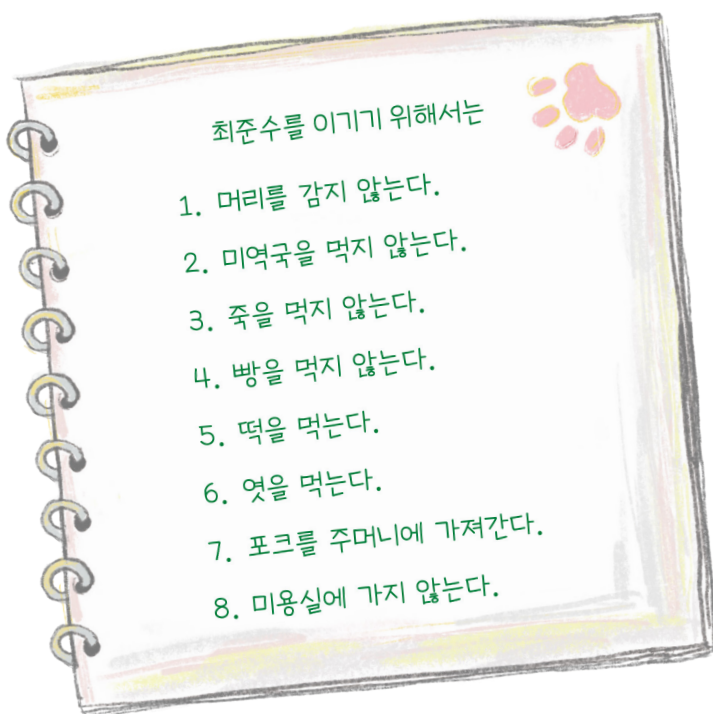 최준수를 이기기 위해서는
1. 머리를 감지 않는다.
2. 미역국을 먹지 않는다.
3. 죽을 먹지 않는다.
4. 빵을 먹지 않는다.
5. 떡을 먹는다.
6. 엿을 먹는다.
7. 포크를 주머니에 가져간다.
8. 미용실에 가지 않는다.